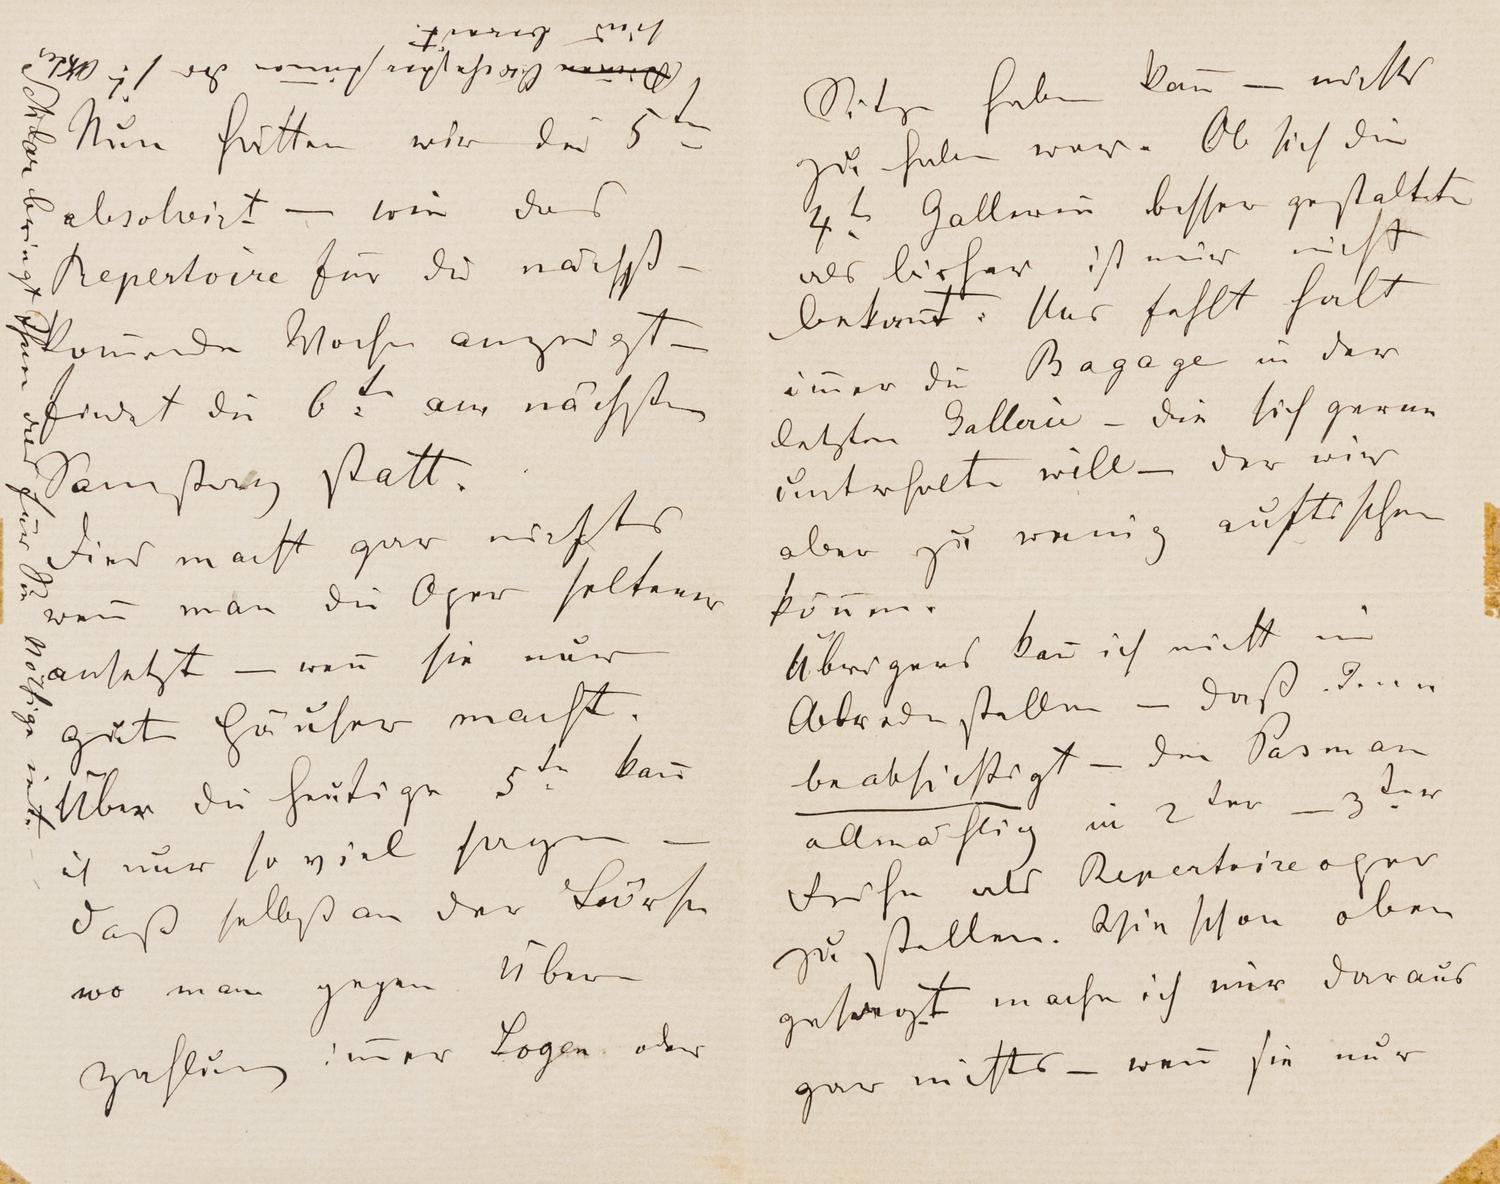 Nun hätten wir die 5te
absolvirt — wie das
Repertoire für die nächst-
kom̄ende Woche anzeigt —
findet die 6te am nächsten
Samstag statt.
Dies macht gar nichts
wen̄ man die Oper seltener
ansetzt — wen̄ sie nur
gute Häuser macht.
Über die heutige 5te kan̄
ich nur so viel sagen —
daß selbst an der
wo man gegen Über-
zahlung im̄er Logen oder
Sitze haben kan̄ — nichts
zu haben war. Ob sich die
4te Gallerie besser gestaltete
als bisher ist mir nicht
bekan̄t. Uns fehlt halt
im̄er die Bagage in der
letzten Gallerie — die sich gerne
unterhalten will — der wir
aber zu wenig auftischen
kön̄en.
Übrigens kan̄ ich nicht in
Abrede stellen — daß
beabsichtigt — den Pasman
allmächtig in 2ter — 3ter
Reihe als Repertoireoper
zu stellen. Wie schon oben
gesagt mache ich mir daraus
gar nichts — wen̄ sie nur
bringt Ihnen das für Sie Nöthige mit.
sind bereit.